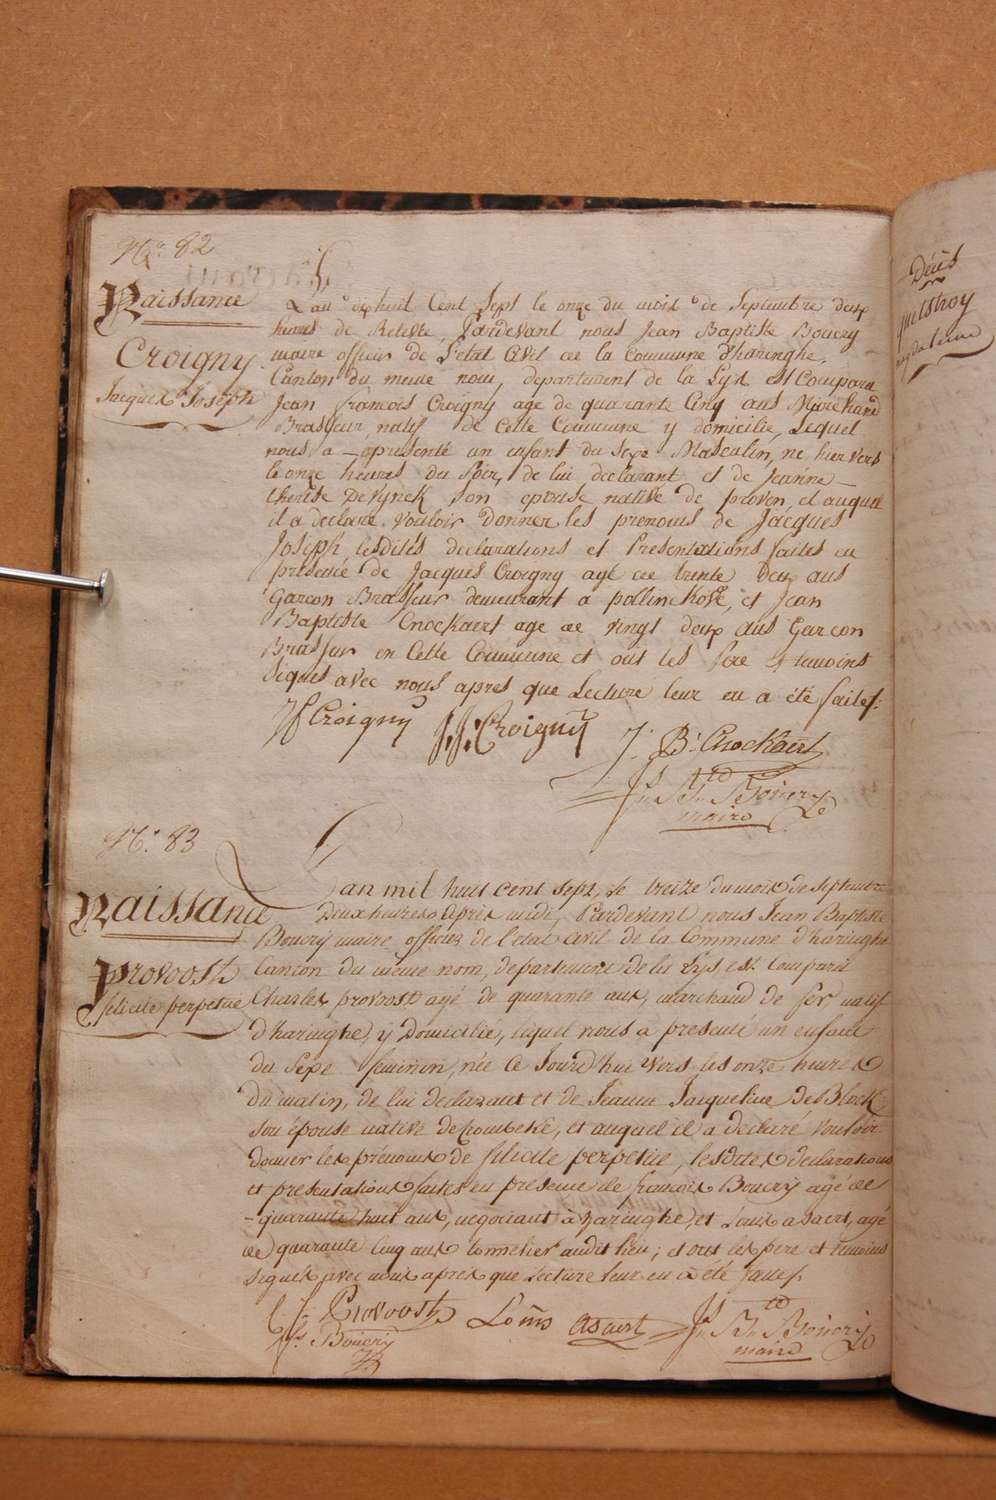 N.º 82
Naissance
Croigny
Jacques Joseph
L'an dixhuit Cent Sept le onze du mois de Septembre deux
heures de Relevée, Pardevant nous Jean Baptiste Bouery
maire officier de l'état Civil de la Commune d'haringhe,
Canton du meme nom, departement de la Lys est Comparu
Jean francois Croigny age de quarante Cinq ans Marchand
Brasseur, natif de Cette Commune y domicilie, Lequel
nous a presenté un enfant du Sexe Masculin, ne hier vers
le onze heures du Soir, de lui declarant et de Jeanne
therese Devynck son epouse native de proven, et auquel
il a declare vouloir donner les prenoms de Jacques
Joseph, lesdites declarations et Presentations faites en
presence de Jacques Croigny agé de trente Deux ans
Garcon Brasseur demeurant a pollinchove, et Jean
Baptiste Cnockaert age de vingt deux ans Garcon
Brasseur en Cette Commune et ont les pere et temoins
Signes avec nous apres que Lecture leur en a été faites.
JF Croigny J.J. Croigny J. Bt Cnockaert
Jn Bte Bouery
maire
N.º 83
Naissance
provoost
felicite perpetue
L'an mil huit cent sept, le treize du mois de Septembre
Deux heures après midi, Pardevant nous Jean Baptiste
Bouery maire officier de l'etat Civil de la Commune d'haringhe
Canton du même nom, departement de la Lys est Comparu
Charles provoost agé de quarante ans, marchand de fer natif
d'haringhe, y Domicilié, lequel nous a presenté un enfant
du Sexe feminin, née Ce Jourd'hui vers les onze heures
Du matin, de lui declarant et de Jeanne Jacqueline De Block
son épouse native de Crombeke, et auquel il a declaré vouloir
donner les prénoms de felicite perpetue, lesdites declarations
et presentations faites en presence de francois Bouery agé de
quarante huit ans, negociant à haringhe, et Louis asaert, agé
de quarante Cinq ans tonnelier audit lieu; et ont les pere et temoins
Signés avec nous après que Lecture leur en a été faites.
C J Provoost Louis Asaert Jn Bte Bouery
fs Bouery maire
Décès